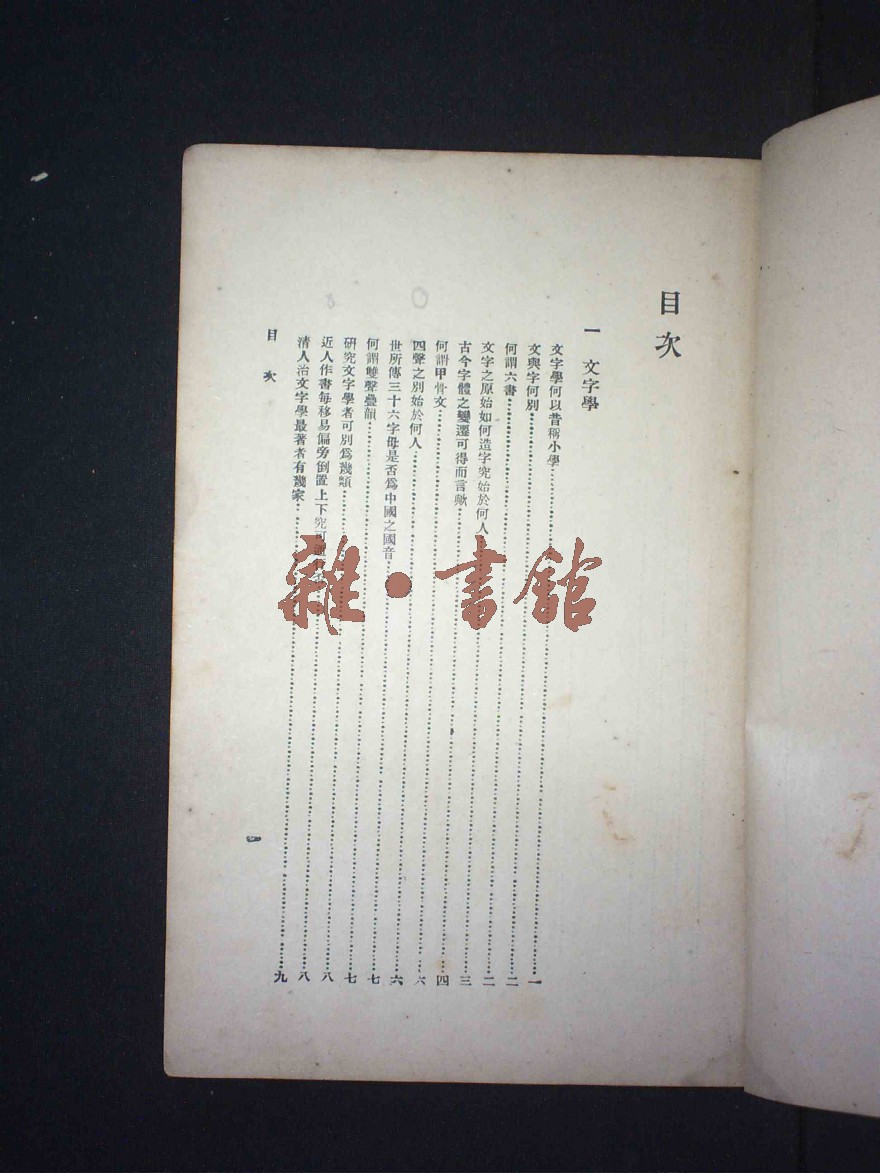 目次
一 文字學
文字學何以昔稱小學……一
文與字何別……二
何謂六書……二
文字之原始如何造字究始於何人……三
古今字體之變遷可得而言歟……四
何謂甲骨文……六
四聲之別始於何人……六
世所傳三十六字母是否爲中國之國音……七
何謂雙聲疊韻……七
研究文字學者可別爲幾類……八
近人作書每移易偏旁倒置上下究可……八
清人治文字學最著者有幾家……九
目次
一
雜·書館